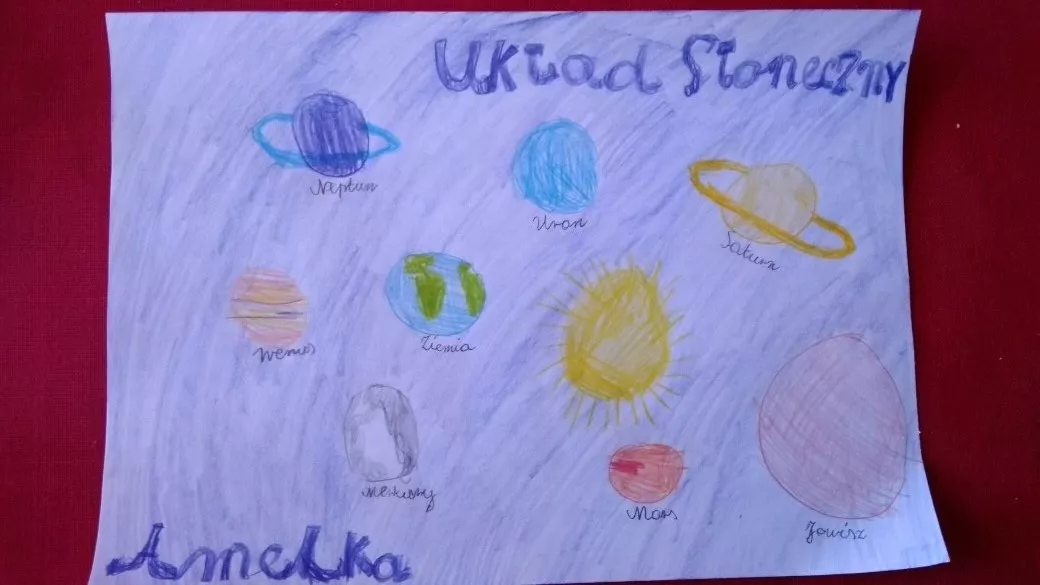 Układ Słoneczny
Neptun
Uran
Saturn
Wenus
Ziemia
Merkury
Mars
Jowisz
Amelka